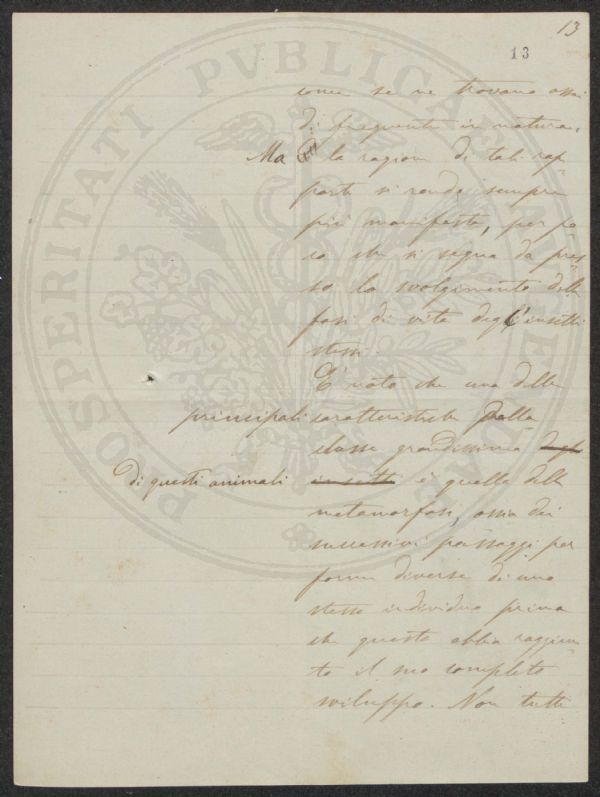 13
13
come se ne trovano assai
di frequente in natura.
Ma la ragione di tali rap-
porti si rende sempre
più manifesta, per po-
co che si segua da pres-
so lo svolgimento delle
fasi di vita degl'insetti
stessi.
È noto che una delle
principali caratteristiche della
classe grandissima degl'
insetti
di questi animali è quella delle
metamorfosi, ossia dei
successivi passaggi per
forme diverse di uno
stesso individuo prima
che questo abbia raggiun-
to il suo completo
sviluppo. Non tutti
PROSPERITATI PVBLICAE AVGENDAE